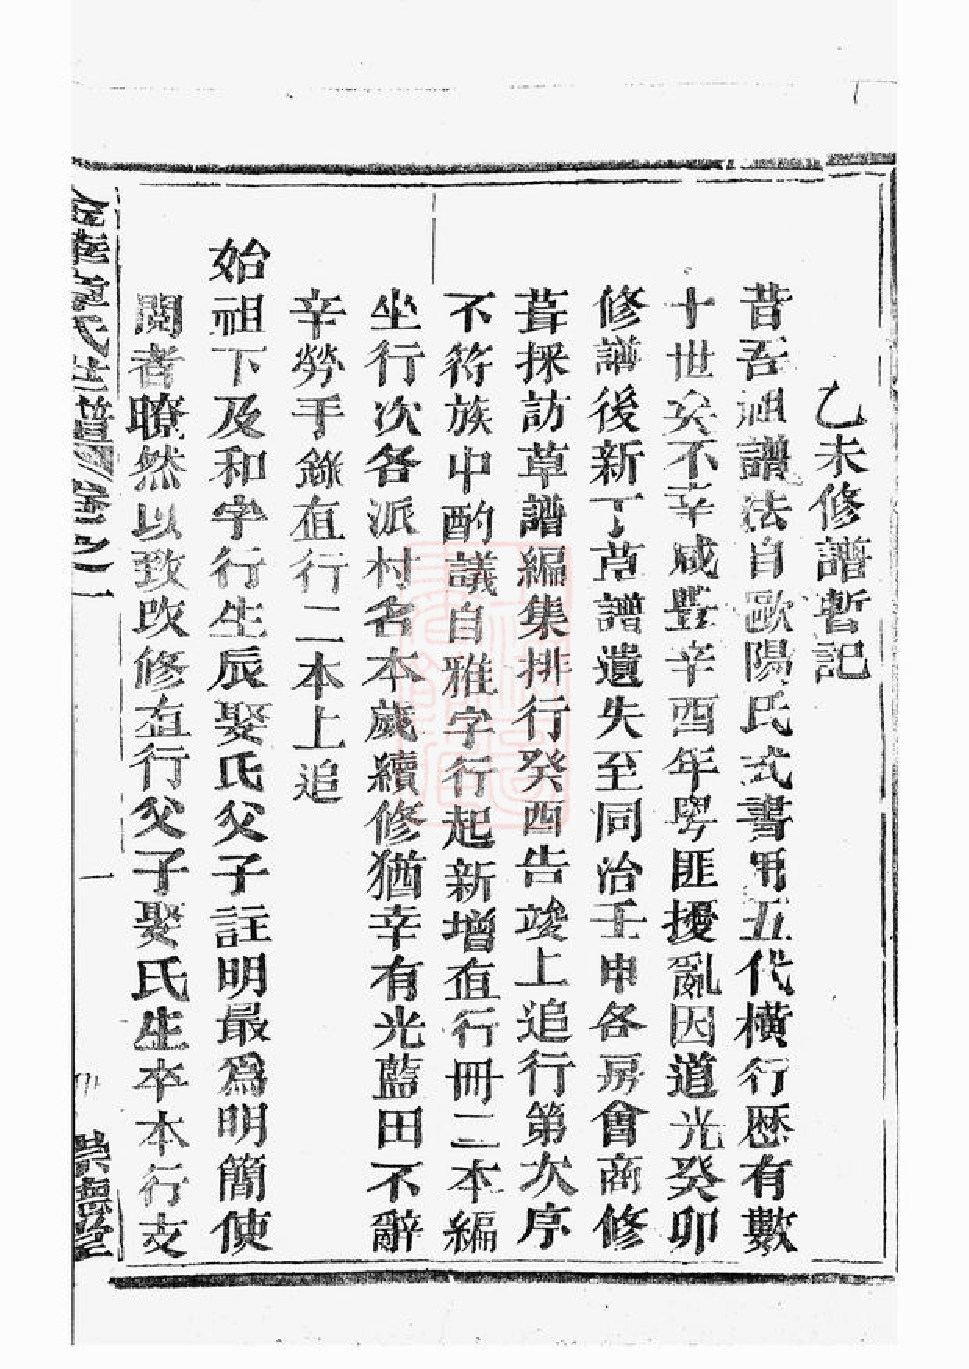 乙未修譜暫記
昔吾祖譜法自歐陽氏式書用五代橫行歷有數
十世矣不幸咸豐辛酉年粵匪擾亂因道光癸卯
修譜後新丁草譜遺失至同治壬申各房會商修
葺採訪草譜編集排行癸酉告竣上追行第次序
不符族中酌議自雅字行起新增直行冊二本編
坐行次各派村名本歲續修猶幸有光藍田不辭
辛勞手錄直行二本上追
始祖下及和字行生辰娶氏父子註明最為明簡使
閱者瞭然以致改修直行父子娶氏生卒本行支
氏世譜 卷之一
一
崇德堂